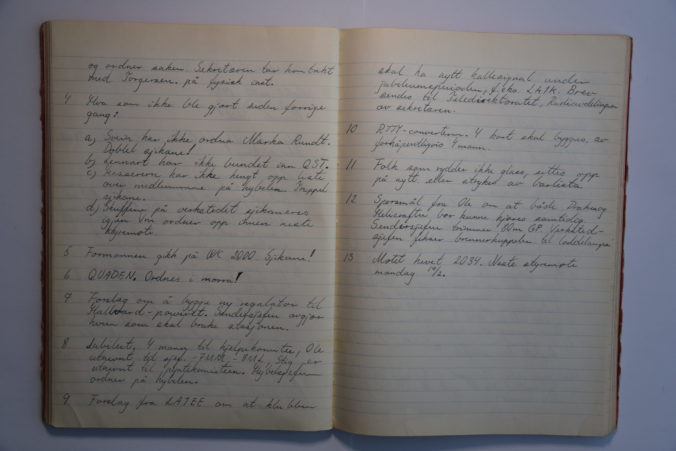 og ordner saken. Sekretæren tar kontakt
med Torgersen. på fysisk inst.
4 Hva som ikke ble gjort siden forrige
gang:
a) Svein har ikke ordna Marka Rundt.
Dobbel sjikane!
b) Lennart har ikke bundet inn QST.
c) har ikke hengt opp liste
over medlemmene på hybelen Trippel
sjikane.
d) Skuffene på verkstedet sjikaneres
igjen. Vm ordner opp innen neste
styremøte.
5 Formannen gikk på WC 2000. Sjikane!
6 QUADEN. Ordnes i morra!
7 Forslag om å bygge ny regulator til
avgjør
hvem som skal bruke stasjonen.
8 Jubileet. 4 mann til hjelpekomitee, Ole
utnevnt til sjef. Stig er
utnevnt til
ordner på hybelen.
9 Forslag fra LA7EE om at klubben
skal ha nytt kallesignal under
jubileumsperioden, f.eks. LA1K. Brev
sendes til Teledirektoratet, Radioavdelingen
av sekretæren.
10 RTTY-converteren. 4 kort skal bygges, av
foreløpig 4 mann.
11 Folk som rydder ikke glass, settes opp
på nytt eller strykes av barlista.
12 Spørsmål fra Ole om at både
bør kunne kjøres samtidig.
Senderesjefen Verksted-
sjefen fikser til loddelampa
13 Møtet hevet 2034. Neste styremøte
mandag